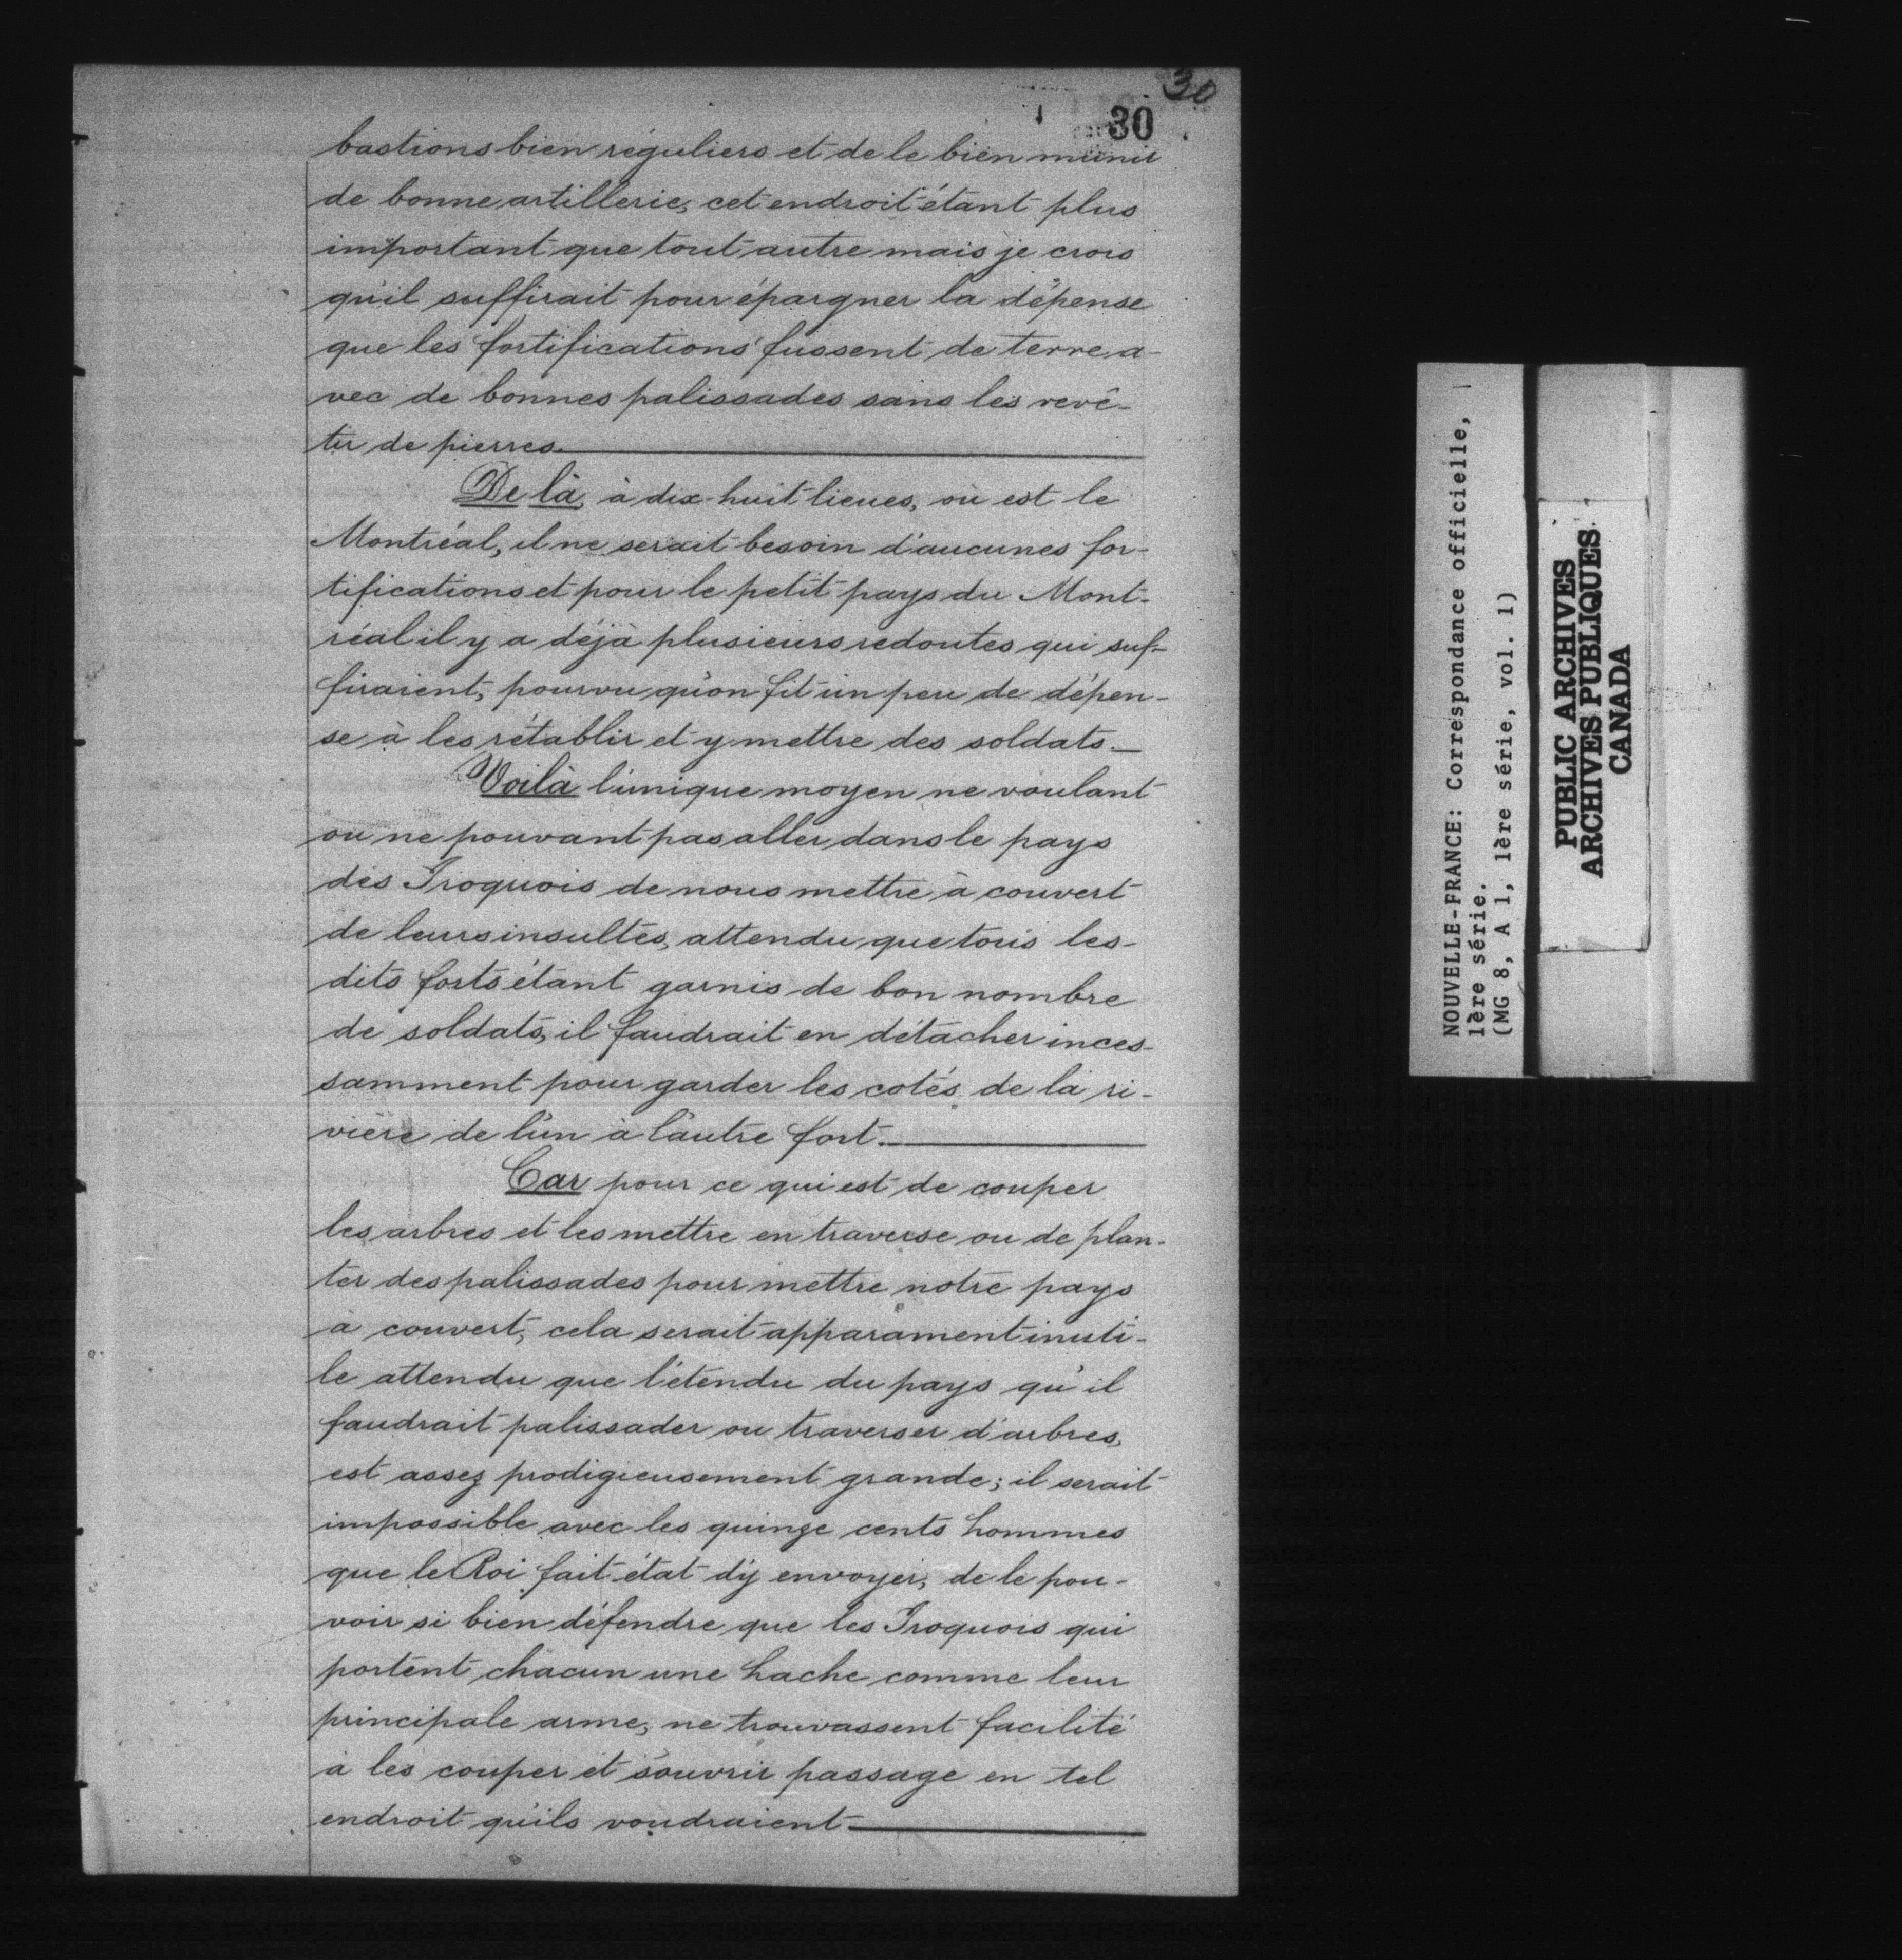 30
30
bastions bien réguliers et de le bien munir
de bonne artillerie, cet endroit étant plus
important que tout autre mais je crois
qu'il suffirait pour épargner la dépense
que les fortifications fussent de terre a-
vec de bonnes palissades sans les revê-
tir de pierres.
De là, à dix-huit lieues, où est le
Montréal, il ne serait besoin d'aucunes for-
tifications et pour le petit pays du Mont-
réal il y a déjà plusieurs redoutes qui suf-
firaient, pourvu qu'on fit un peu de dépen-
se à les rétablir et y mettre des soldats.
Voilà l'unique moyen ne voulant
ou ne pouvant pas aller dans le pays
des Iroquois de nous mettre à couvert
de leurs insultes, attendu que tous les-
dits forts étant garnis de bon nombre
de soldats, il faudrait en détacher inces-
samment pour garder les cotés de la ri-
vière de l'un à l'autre fort.
Car pour ce qui est de couper
les arbres et les mettre en traverse ou de plan-
ter des palissades pour mettre notre pays
à couvert, cela serait apparament inuti-
le attendu que l'étendu du pays qu'il
faudrait palissader ou traverser d'arbres,
est assez prodigieusement grande; il serait
impossible avec les quinze cents hommes
que le Roi fait état d'y envoyer, de le pou-
voir si bien défendre que les Iroquois qui
portent chacun une hache comme leur
principale arme, ne trouvassent facilité
à les couper et s'ouvrir passage en tel
endroit qu'ils voudraient
NOUVELLE-FRANCE: Correspondance officielle,
1ère série.
(MG 8, A 1, 1ère série, vol. 1)
PUBLIC ARCHIVES
ARCHIVES PUBLIQUES
CANADA